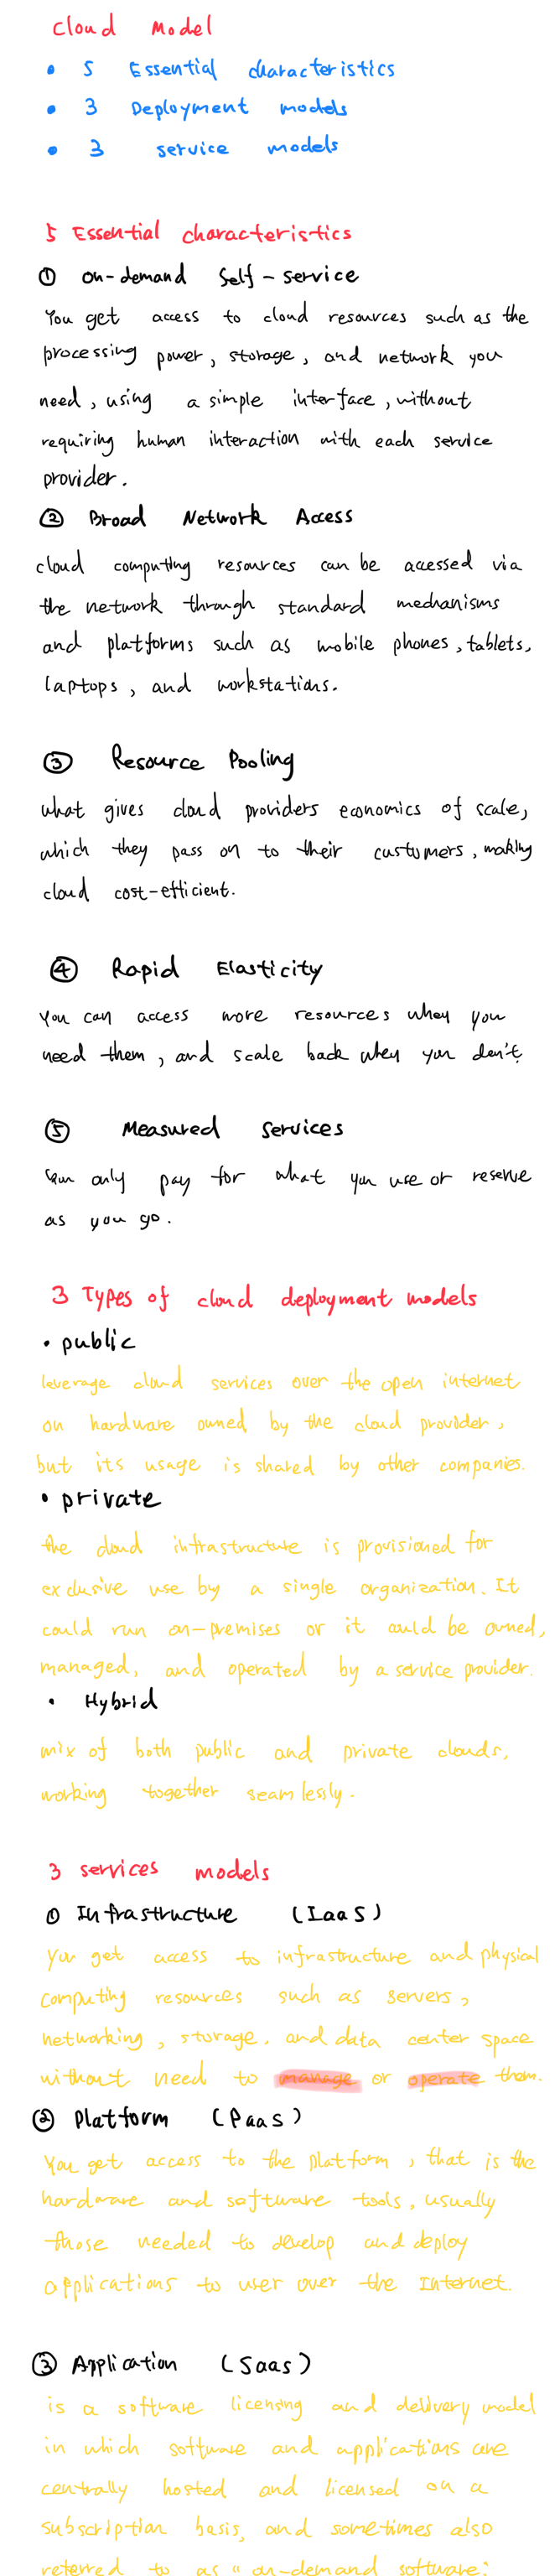 Cloud Model
• 5 Essential characteristics
• 3 Deployment models
• 3 service models
5 Essential characteristics
① On-demand Self-service
You get access to cloud resources such as the
processing power, storage, and network you
need, using a simple interface, without
requiring human interaction with each service
provider.
② Broad Network Access
cloud computing resources can be accessed via
the network through standard mechanisms
and platforms such as mobile phones, tablets,
laptops, and workstations.
③ Resource Pooling
what gives cloud providers economics of scale,
which they pass on to their customers, making
cloud cost-efficient.
④ Rapid Elasticity
You can access more resources when you
need them, and scale back when you don't.
⑤ Measured Services
You only pay for what you use or reserve
as you go.
3 Types of cloud deployment models
• public
leverage cloud services over the open internet
on hardware owned by the cloud provider,
but its usage is shared by other companies.
• private
the cloud infrastructure is provisioned for
exclusive use by a single organization. It
could run on-premises or it could be owned,
managed, and operated by a service provider.
• Hybrid
mix of both public and private clouds,
working together seamlessly.
3 services models
① Infrastructure (IaaS)
You get access to infrastructure and physical
computing resources such as servers,
networking, storage, and data center space
without need to manage or operate them.
② Platform (PaaS)
You get access to the platform, that is the
hardware and software tools, usually
those needed to develop and deploy
applications to user over the Internet.
③ Application (SaaS)
is a software licensing and delivery model
in which software and applications are
centrally hosted and licensed on a
subscription basis, and sometimes also
referred to as "on-demand software."